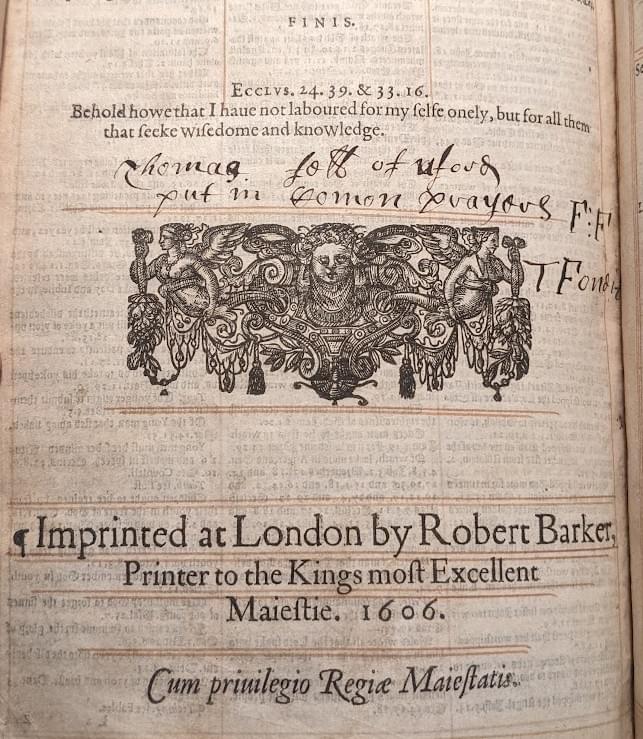 FINIS.
ECCLVS. 24. 39. & 33. 16.
Behold howe that I haue not laboured for my ſelfe onely, but for all them
that ſeeke wiſedome and knowledge.
Thomas fell of uford
put in Comon prayers
F:F
T Fond
¶ Imprinted at London by Robert Barker,
Printer to the Kings moſt Excellent
Maieſtie. 1606.
Cum priuilegio Regiæ Maieſtatis.